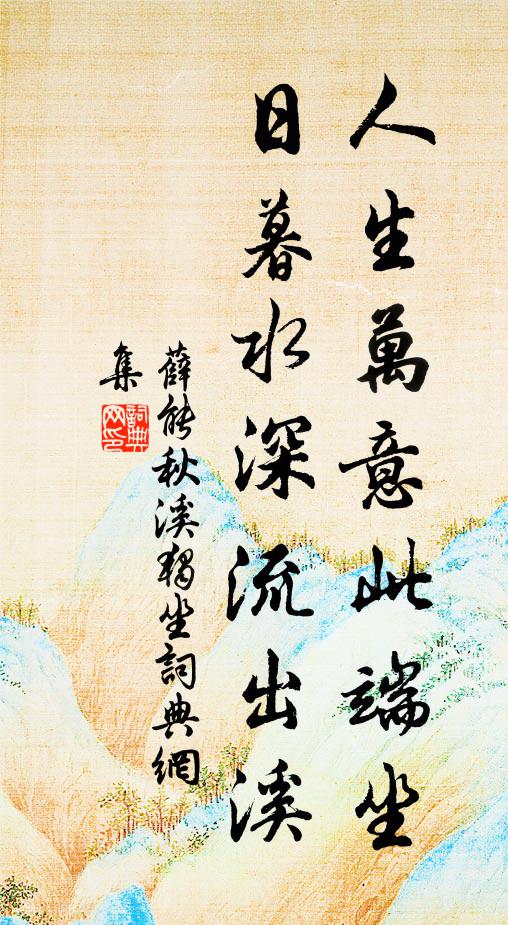 人生萬意此端坐
日暮水深流出溪
薛能秋溪獨坐詞典網
集
詞典
网印